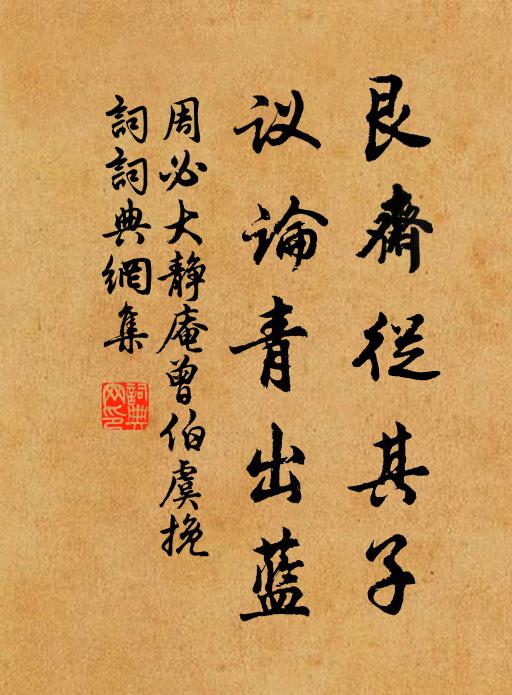 艮齋從其子
议論青出藍
周必大静庵曾伯虞挽
詞詞典網集
詞典网印